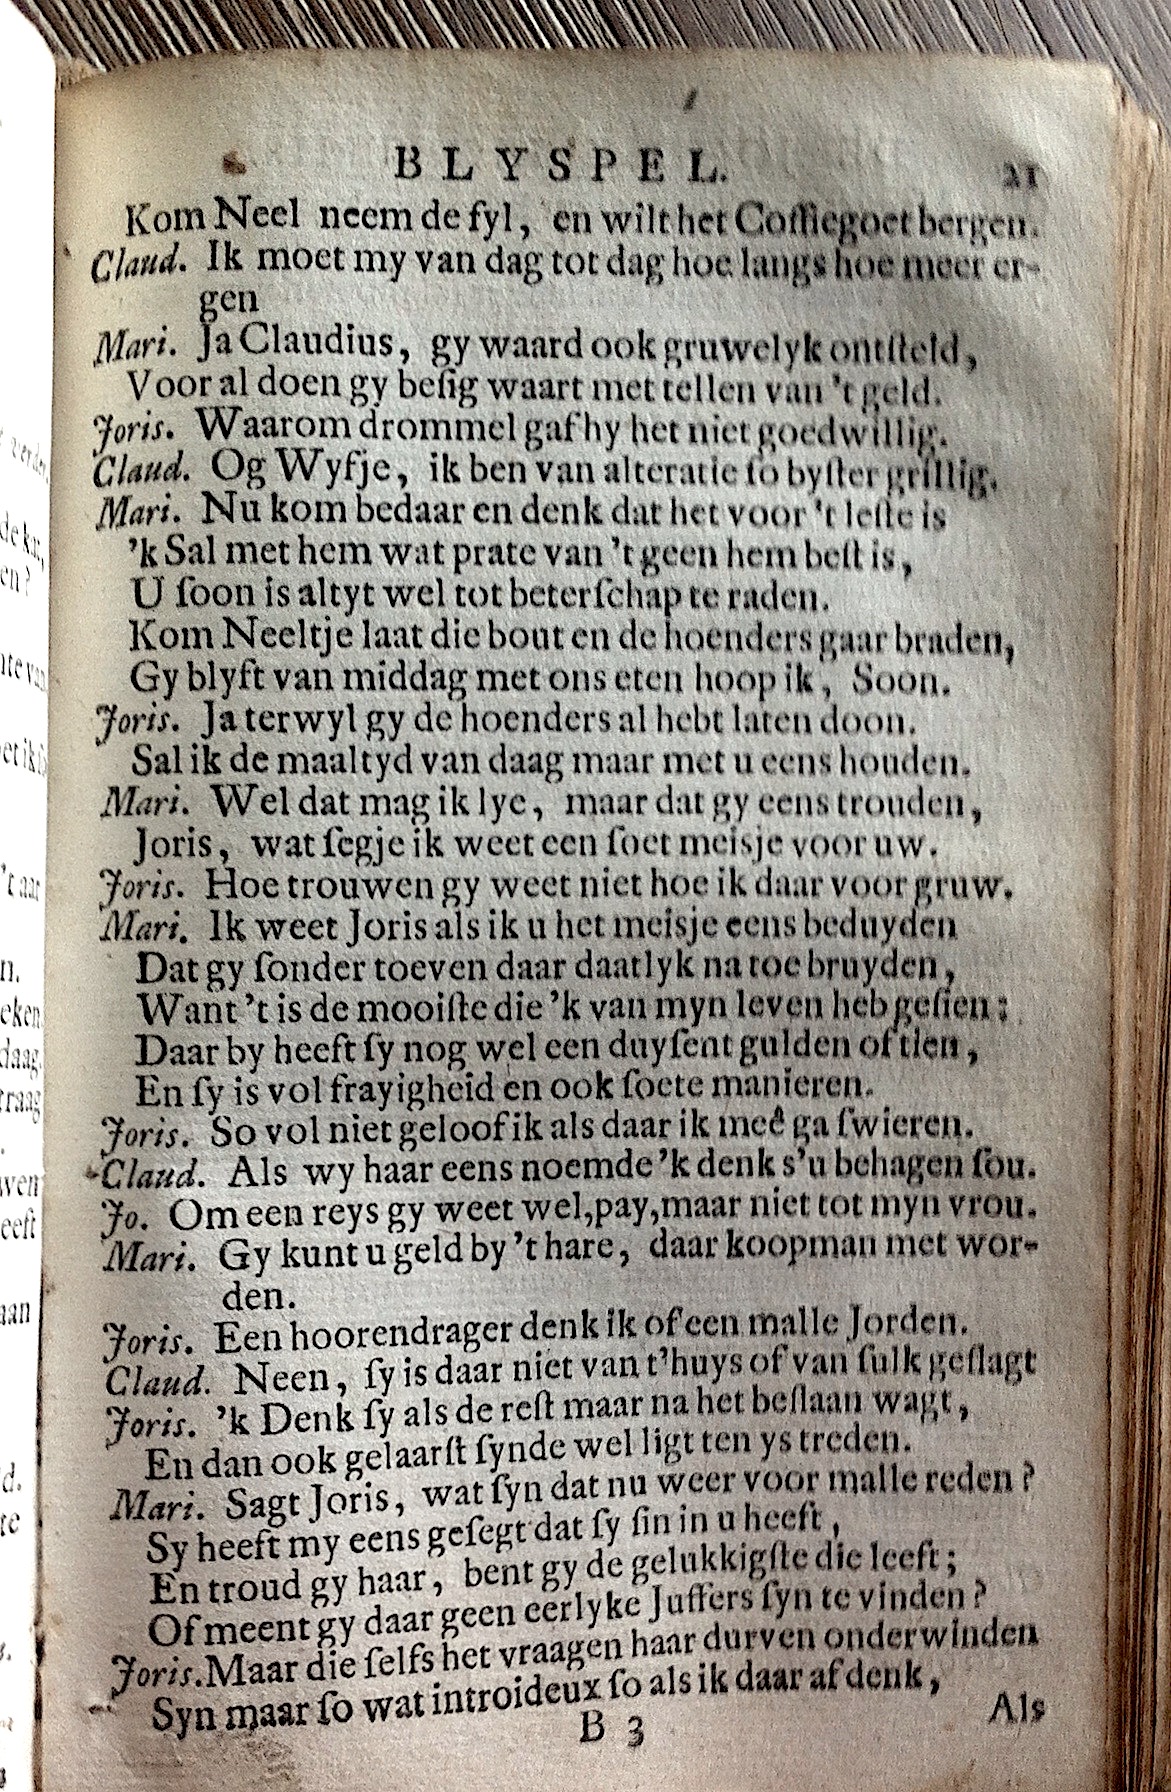 BLYSPEL. 21
Kom Neel neem de ſyl, en wilt het Coffiegoet bergen.
Claud. Ik moet my van dag tot dag hoe langs hoe meer er-
gen
Mari. Ja Claudius, gy waard ook gruwelyk ontſteld,
Voor al doen gy beſig waart met tellen van 't geld.
Joris. Waarom drommel gaf hy het niet goedwillig.
Claud. Og Wyfje, ik ben van alteratie ſo byſter grillig.
Mari. Nu kom bedaar en denk dat het voor 't leſte is
'k Sal met hem wat prate van 't geen hem beſt is,
U ſoon is altyt wel tot beterſchap te raden.
Kom Neeltje laat die bout en de hoenders gaar braden,
Gy blyft van middag met ons eten hoop ik, Soon.
Joris. Ja terwyl gy de hoenders al hebt laten doon.
Sal ik de maaltyd van daag maar met u eens houden.
Mari. Wel dat mag ik lye, maar dat gy eens trouden,
Joris, wat ſegje ik weet een ſoet meisje voor uw.
Joris. Hoe trouwen gy weet niet hoe ik daar voor gruw.
Mari. Ik weet Joris als ik u het meisje eens beduyden
Dat gy ſonder toeven daar daatlyk na toe bruyden,
Want 't is de mooiſte die 'k van myn leven heb geſien;
Daar by heeft ſy nog wel een duyſent gulden of tien,
En ſy is vol frayigheid en ook ſoete manieren.
Joris. So vol niet geloof ik als daar ik meê ga ſwieren.
Claud. Als wy haar eens noemde 'k denk s'u behagen ſou.
Jo. Om een reys gy weet wel,pay,maar niet tot myn vrou.
Mari. Gy kunt u geld by 't hare, daar koopman met wor-
den.
Joris. Een hoorendrager denk ik of een malle Jorden.
Claud. Neen, ſy is daar niet van t'huys of van ſulk geſlagt
Joris. 'k Denk ſy als de reſt maar na het beſlaan wagt,
En dan ook gelaarſt ſynde wel ligt ten ys treden.
Mari. Sagt Joris, wat ſyn dat nu weer voor malle reden?
Sy heeft my eens geſegt dat ſy ſin in u heeft,
En troud gy haar, bent gy de gelukkigſte die leeft;
Of meent gy daar geen eerlyke Juffers ſyn te vinden?
Joris. Maar die ſelfs het vraagen haar durven onderwinden
Syn maar ſo wat introideux ſo als ik daar af denk,
B 3 Als